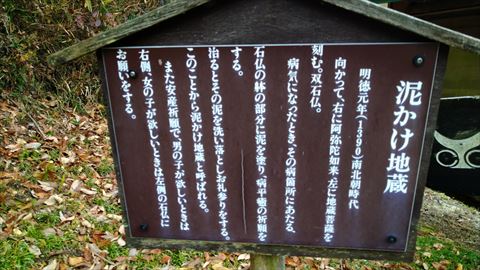 泥かけ地蔵
明徳元年(1390)南北朝時代
向かって、右に阿弥陀如来・左に地蔵菩薩を
刻む。双石仏。
病気になったとき、その病箇所にあたる、
石仏の躰の部分に泥を塗り、病平癒の祈願を
する。
治るとその泥を洗い落としお礼参りをする。
このことから泥かけ地蔵と呼ばれる。
また安産祈願で、男の子が欲しいときは
右側、女の子が欲しいときは左側の石仏に
お願いをする。